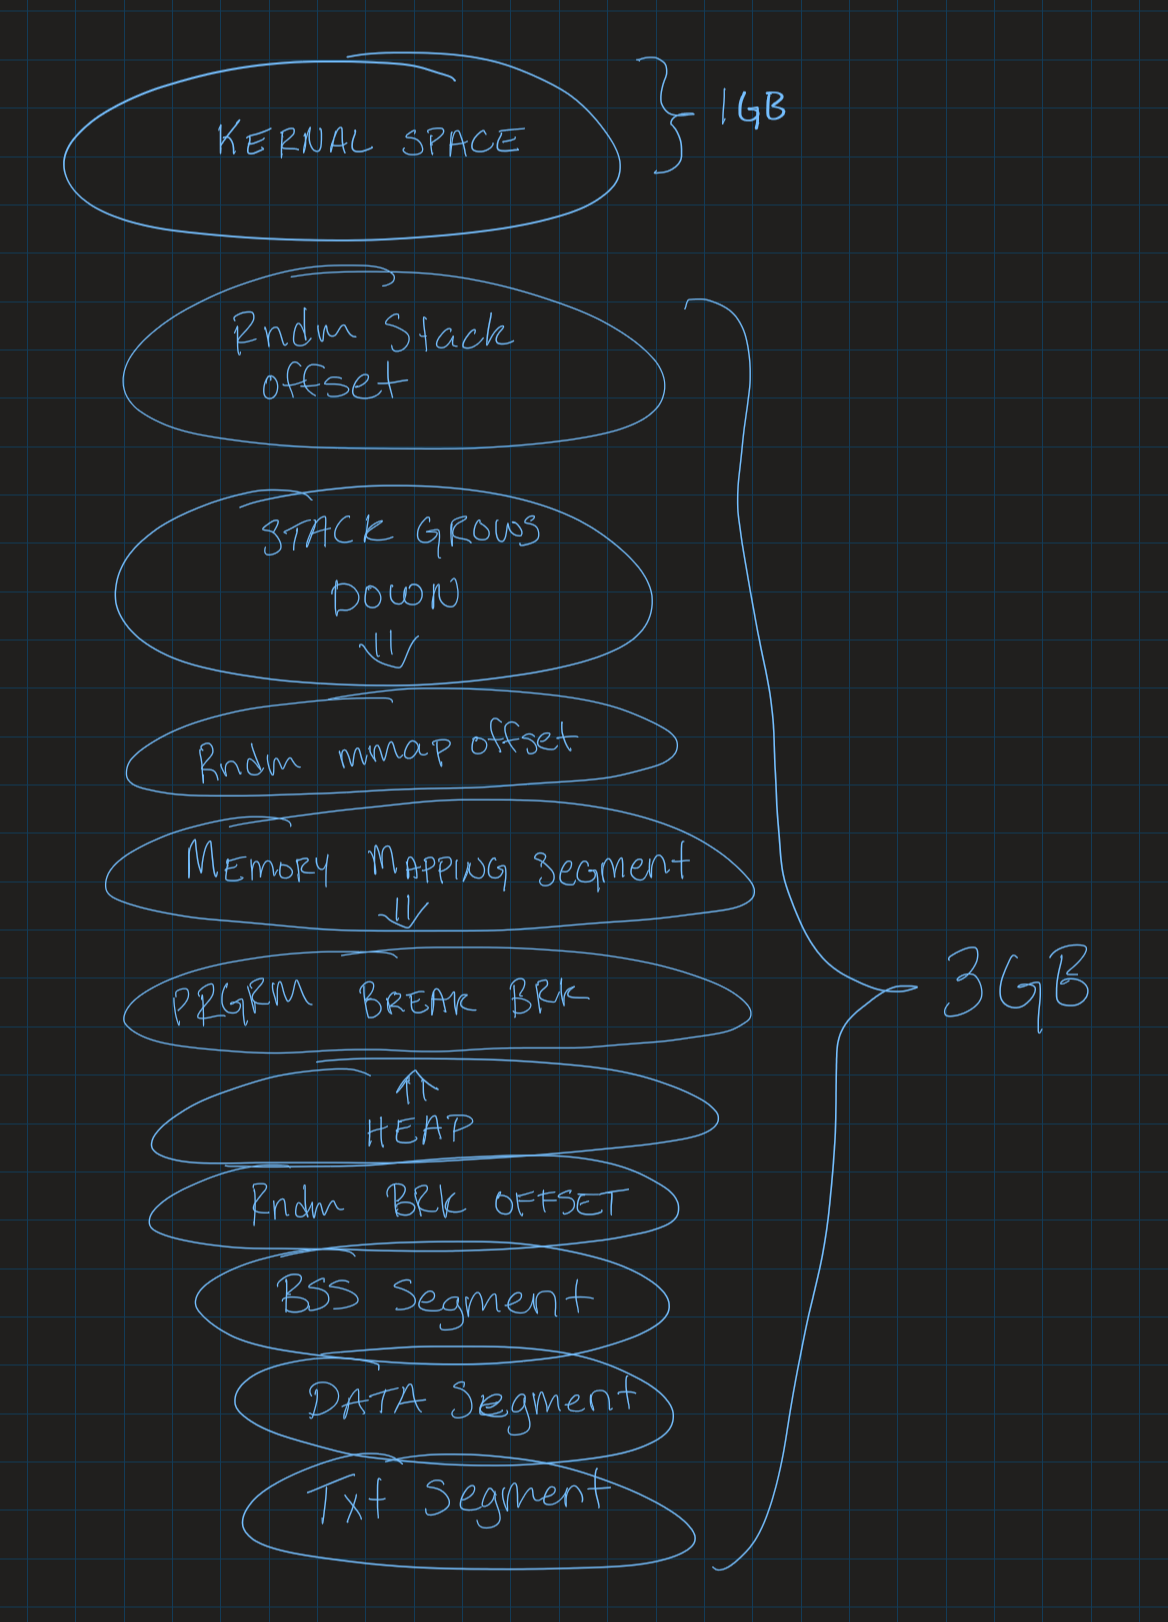 KERNAL SPACE
1GB
Rndm Stack
offset
STACK GROWS
DOWN
Rndm mmap offset
MEMORY MAPPING Segment
PRGRM BREAK BRK
3GB
HEAP
Rndm BRK OFFSET
BSS Segment
DATA Segment
Txt Segment